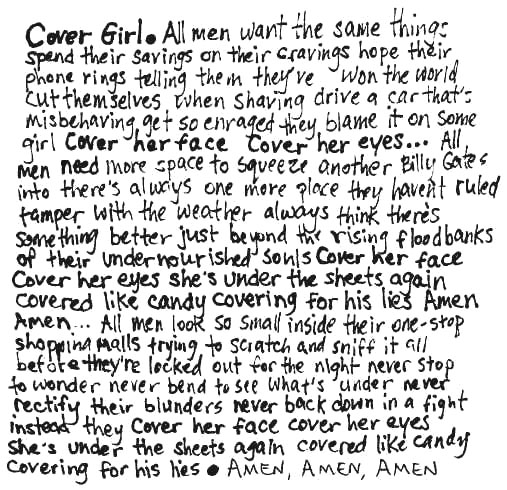 Cover Girl • All men want the same things
spend their savings on their cravings hope their
phone rings telling them they've won the world
cut themselves when shaving drive a car that's
misbehaving get so enraged they blame it on some
girl Cover her face Cover her eyes... All
men need more space to squeeze another Billy Gates
into there's always one more place they haven't ruled
tamper with the weather always think there's
something better just beyond the rising floodbanks
of their undernourished souls Cover her face
Cover her eyes she's under the sheets again
covered like candy covering for his lies Amen
Amen... All men look so small inside their one-stop
shopping malls trying to scratch and sniff it all
before they're locked out for the night never stop
to wonder never bend to see what's under never
rectify their blunders never back down in a fight
instead they Cover her face cover her eyes
she's under the sheets again covered like candy
covering for his lies • AMEN, AMEN, AMEN